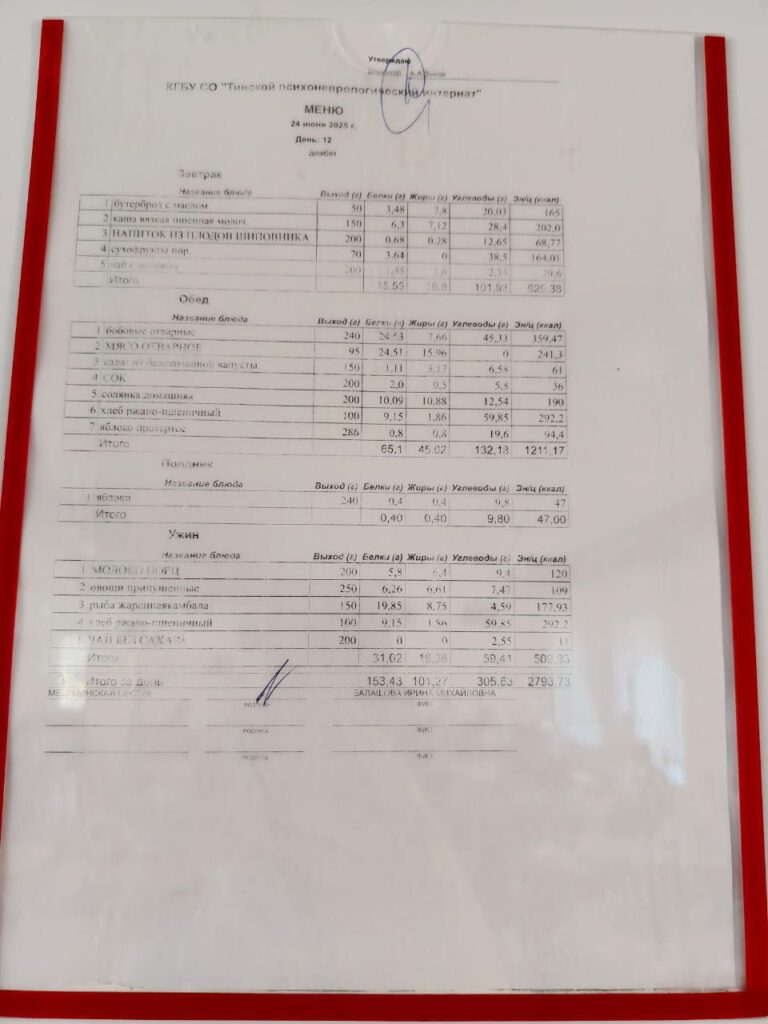 Утверждаю
КГБУ СО "Тинской психоневрологический интернат"
МЕНЮ
24 июня 2025 г.
День: 12
диабет
Завтрак
Название блюда Выход (г) Белки (г) Жиры (г) Углеводы (г) Эн/ц (ккал)
1 бутерброд с маслом 50 3,48 7,8 20,03 165
2 каша вязкая молоч. 150 6,3 7,12 28,4 202,0
3 НАПИТОК ИЗ ПЛОДОВ ШИПОВНИКА 200 0,68 0,28 12,65 68,77
4 сухофрукты пор. 70 3,64 0 38,5 164,01
5 чай с 200 1,6
Итого 15,55 101,93
Обед
Название блюда Выход (г) Белки (г) Жиры (г) Углеводы (г) Эн/ц (ккал)
1 бобовые отварные 240 24,53 7,66 45,33 359,47
2 МЯСО ОТВАРНОЕ 95 24,51 15,96 0 241,3
3 салат из белокочанной капусты 150 1,11 3,17 6,58 61
4 СОК 200 2,0 0,5 5,8 36
5 солянка домашняя 200 10,09 10,88 12,54 190
6 хлеб ржано-пшеничный 100 9,15 1,86 59,85 292,2
7 яблоко протертое 286 0,8 0,8 19,6 94,4
Итого 65,1 45,02 132,18 1211,17
Полдник
Название блюда Выход (г) Белки (г) Жиры (г) Углеводы (г) Эн/ц (ккал)
1 яблоки 240 0,4 0,4 9,8 47
Итого 0,40 0,40 9,80 47,00
Ужин
Название блюда Выход (г) Белки (г) Жиры (г) Углеводы (г) Эн/ц (ккал)
1 МОЛОКО ПОРЦ 200 5,8 6,4 9,4 120
2 овощи припущенные 250 6,26 6,61 7,47 109
3 рыба жаренная камбала 150 19,85 8,75 4,59 177,93
4 хлеб ржано-пшеничный 100 9,15 1,86 59,85 292,2
5 ЧАЙ БЕЗ САХАРА 200 0 0 2,55 11
Итого 31,02
Итого за день 153,43 101,27 305,63 2793,73
МЕДИЦИНСКАЯ СЕСТРА БАЛАШОВА ИРИНА МИХАЙЛОВНА
подпись ФИО
подпись ФИО
подпись ФИО